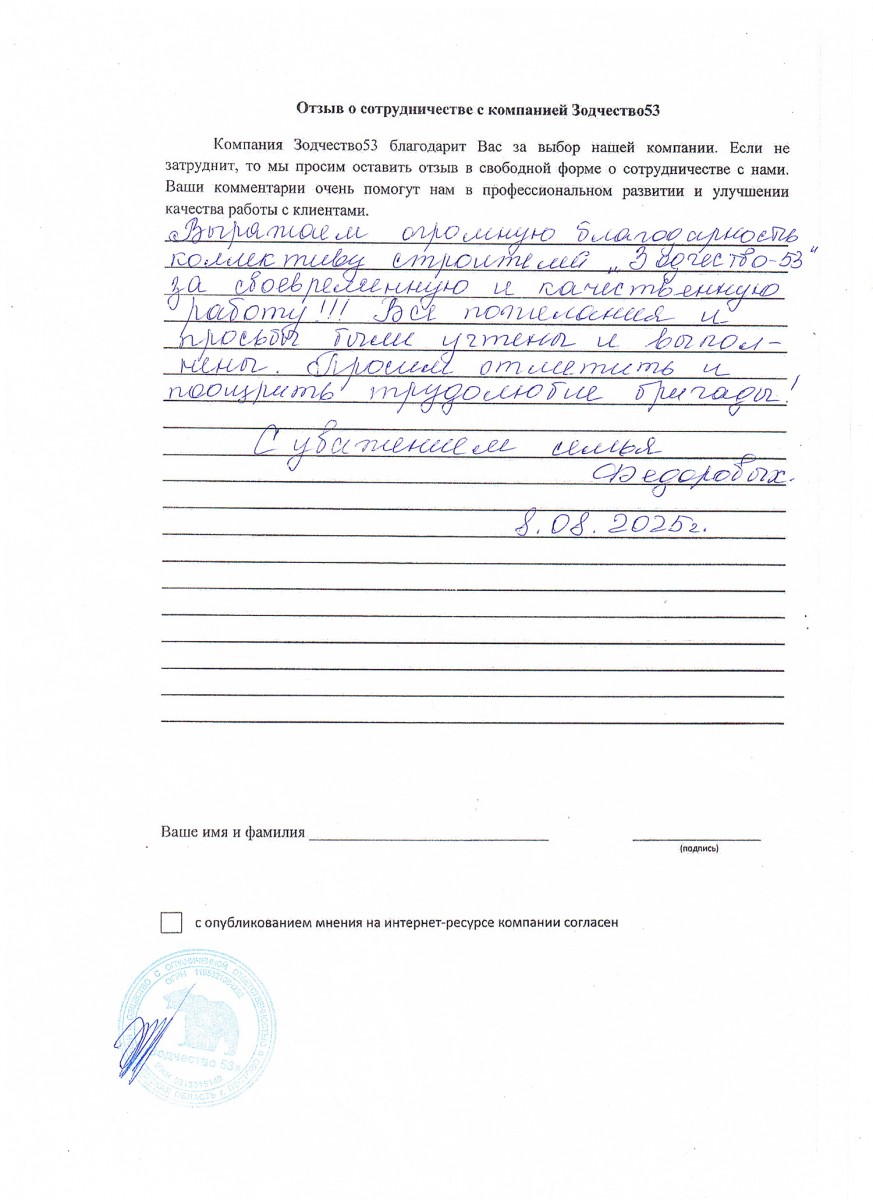 Отзыв о сотрудничестве с компанией Зодчество53
Компания Зодчество53 благодарит Вас за выбор нашей компании. Если не
затруднит, то мы просим оставить отзыв в свободной форме о сотрудничестве с нами.
Ваши комментарии очень помогут нам в профессиональном развитии и улучшении
качества работы с клиентами.
Выражаем огромную благодарность
коллективу строителей „Зодчество-53“
за своевременную и качественную
работу!!! Все пожелания и
просьбы были учтены и выпол-
нены. Просим отметить и
поощрить трудолюбие бригады!
С уважением семья
Федоровых.
8.08.2025г.
Ваше имя и фамилия
(подпись)
с опубликованием мнения на интернет-ресурсе компании согласен
Общество с ограниченной ответственностью
ОГРН
Зодчество 53